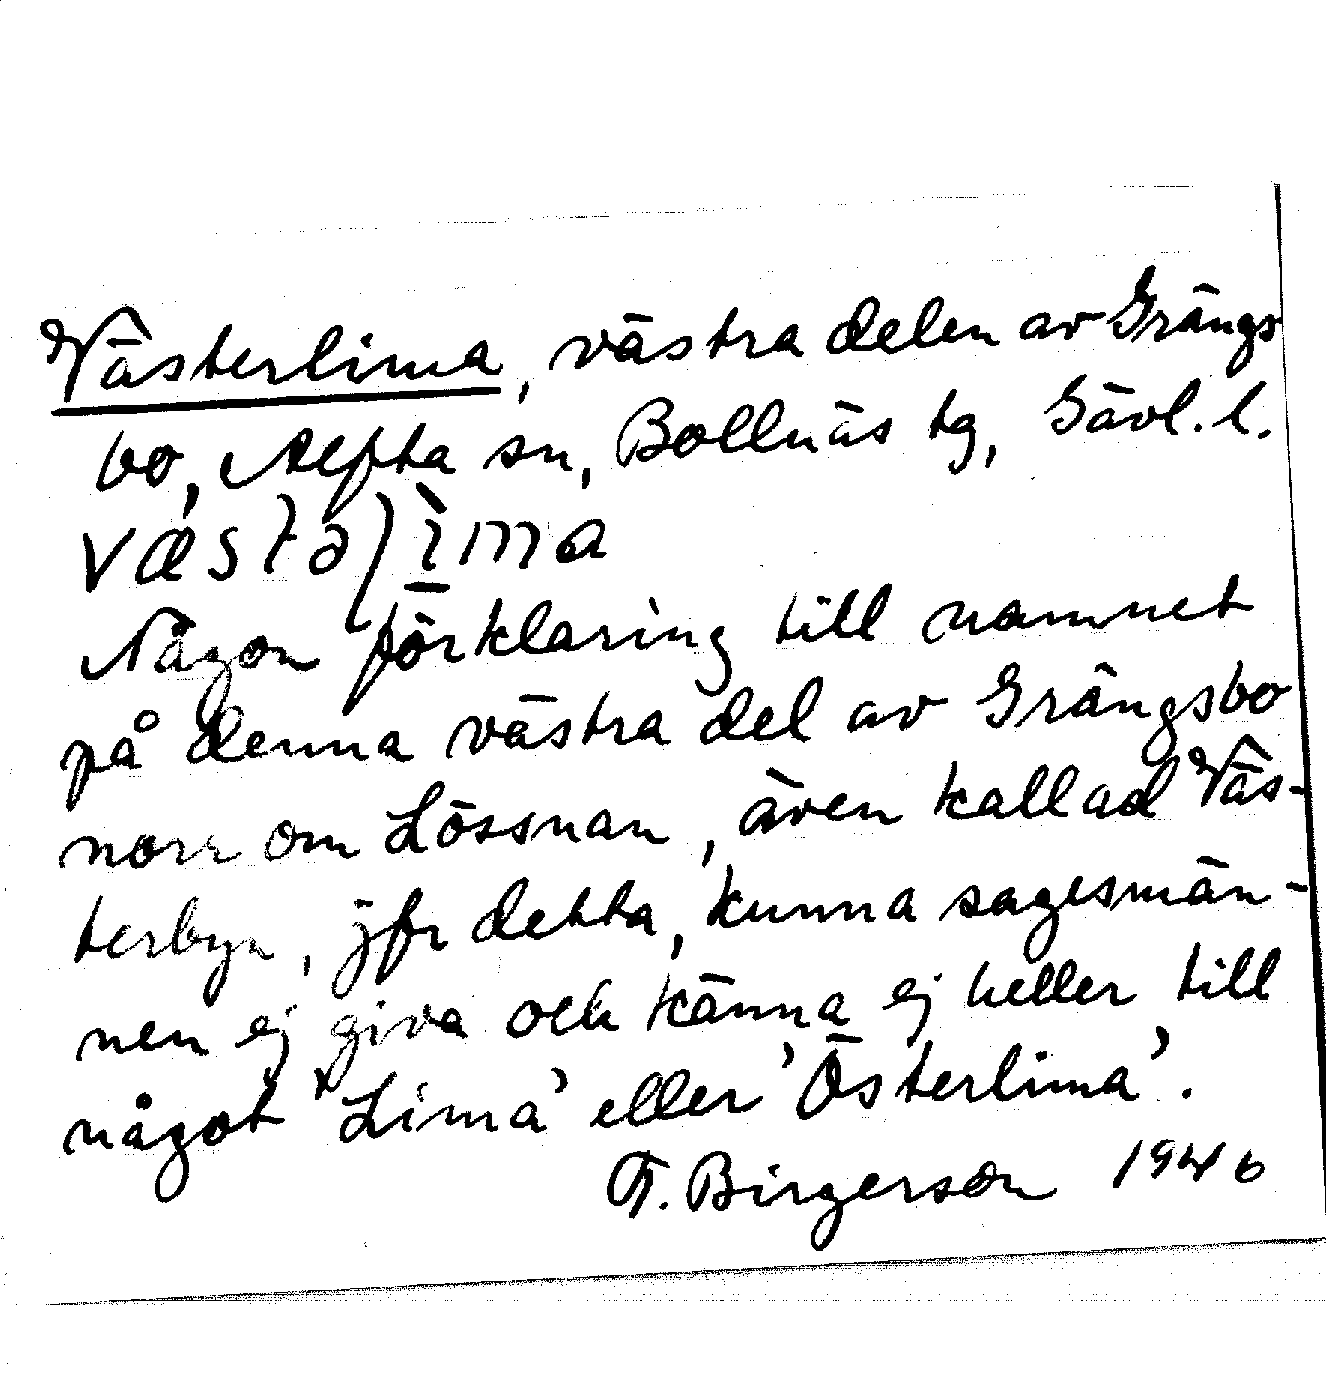 Västerlima, västra delen av Grängs
bo, Alfta sn, Bollnäs tg, Gävl. l.
Någon förklaring till namnet
på denna västra del av Grängsbo
norr om Lössnan, även kallad Väs-
terbyn, jfr detta, kunna sagesmän-
nen ej giva och känna ej heller till
något 'Lima' eller 'Österlima'.
F. Birgerson 1946